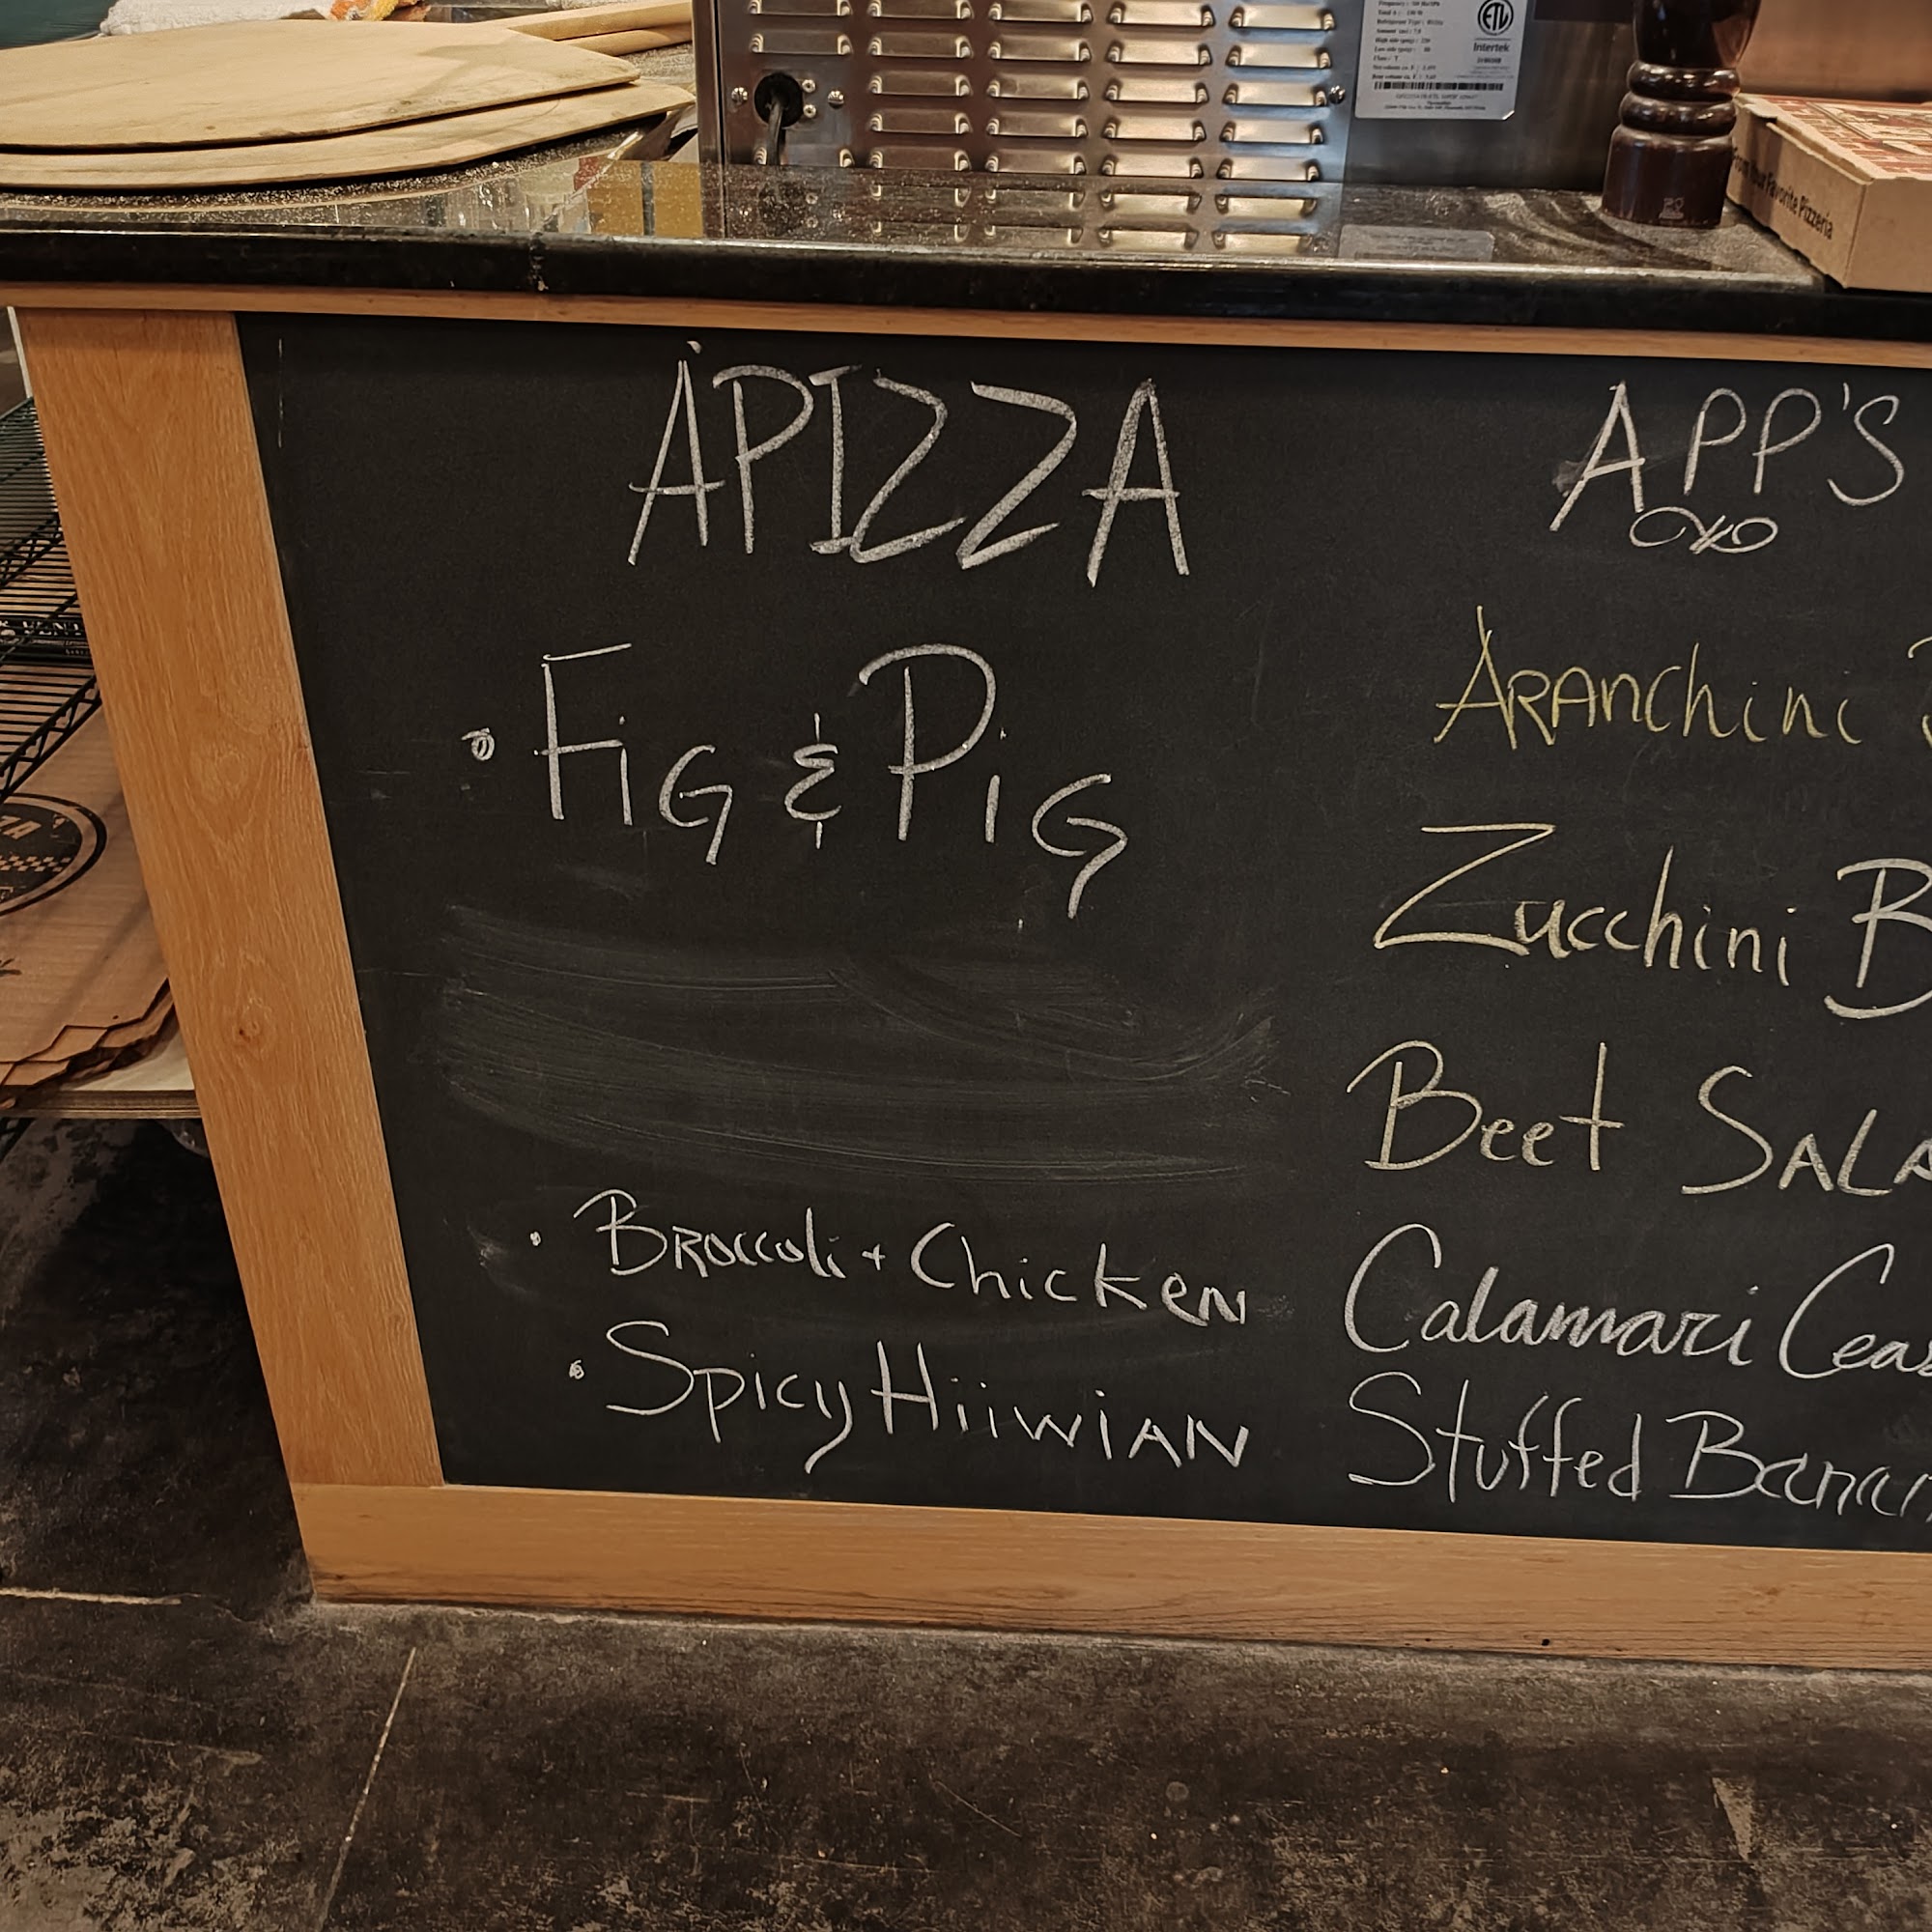 ETL
Intertek
From Your Favorite Pizzeria
APIZZA
Fig & Pig
Broccoli + Chicken
Spicy Hiiwian
APP'S
Aranchini
Zucchini B
Beet Sala
Calamari Ceas
Stuffed Banan